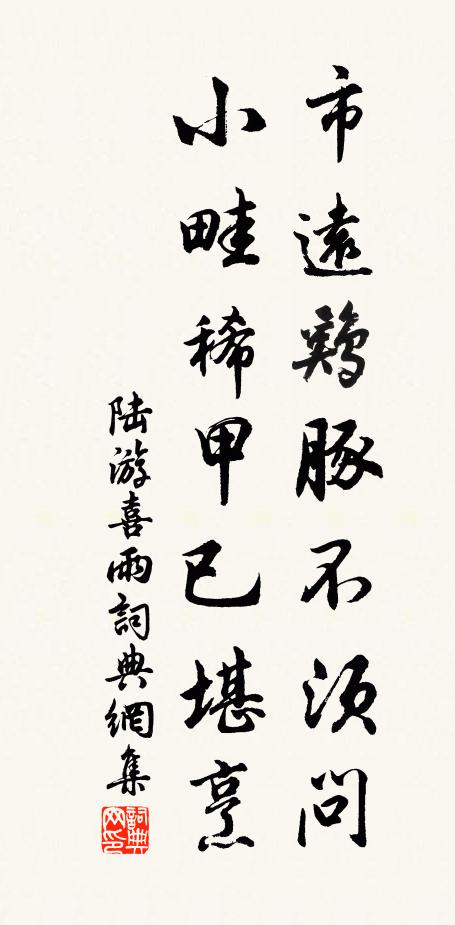 市遠鷄豚不須問
小畦稀甲已堪烹
陆游喜雨詞典網集
詞典
网印